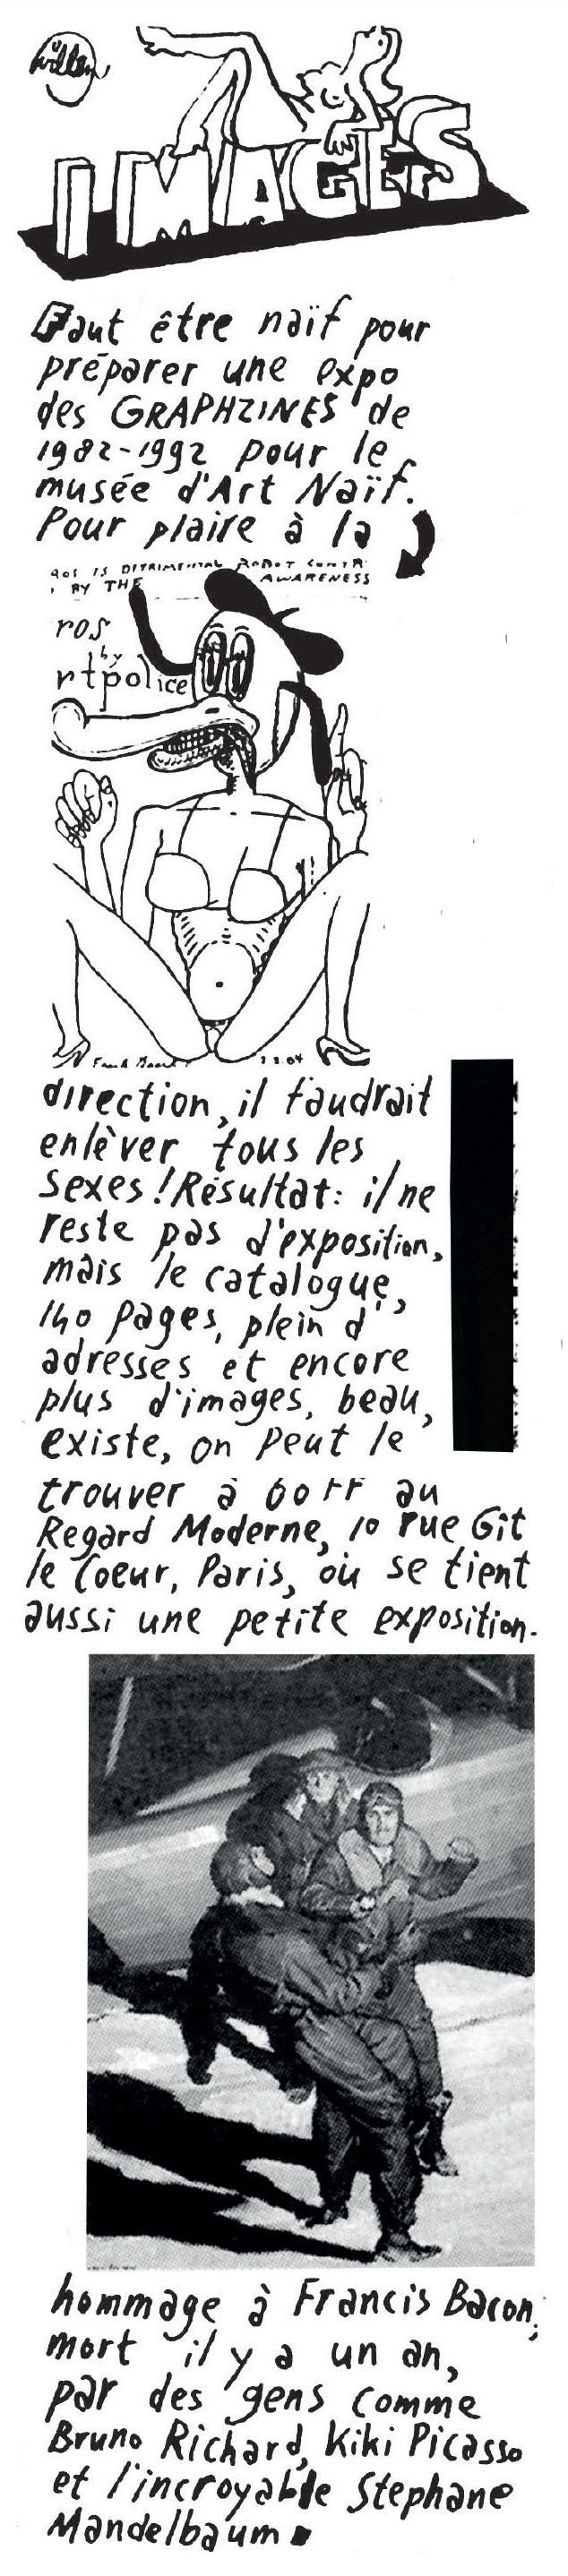 Willem
IMAGES
Faut être naïf pour
préparer une expo
des GRAPHZINES de
1982-1992 pour le
musée d'Art Naïf.
Pour plaire à la
IS DETRIMENTAL ROBOT
BY THE AWARENESS
ros
by
rtpolice
direction, il faudrait
enlèver tous les
sexes! Résultat: il ne
reste pas d'exposition,
mais le catalogue,
140 pages, plein d'
adresses et encore
plus d'images, beau,
existe, on peut le
trouver à 60 FF au
Regard Moderne, 10 rue Gît
le Coeur, Paris, où se tient
aussi une petite exposition.
hommage à Francis Bacon,
mort il y a un an,
par des gens comme
Bruno Richard, Kiki Picasso
et l'incroyable Stephane
Mandelbaum